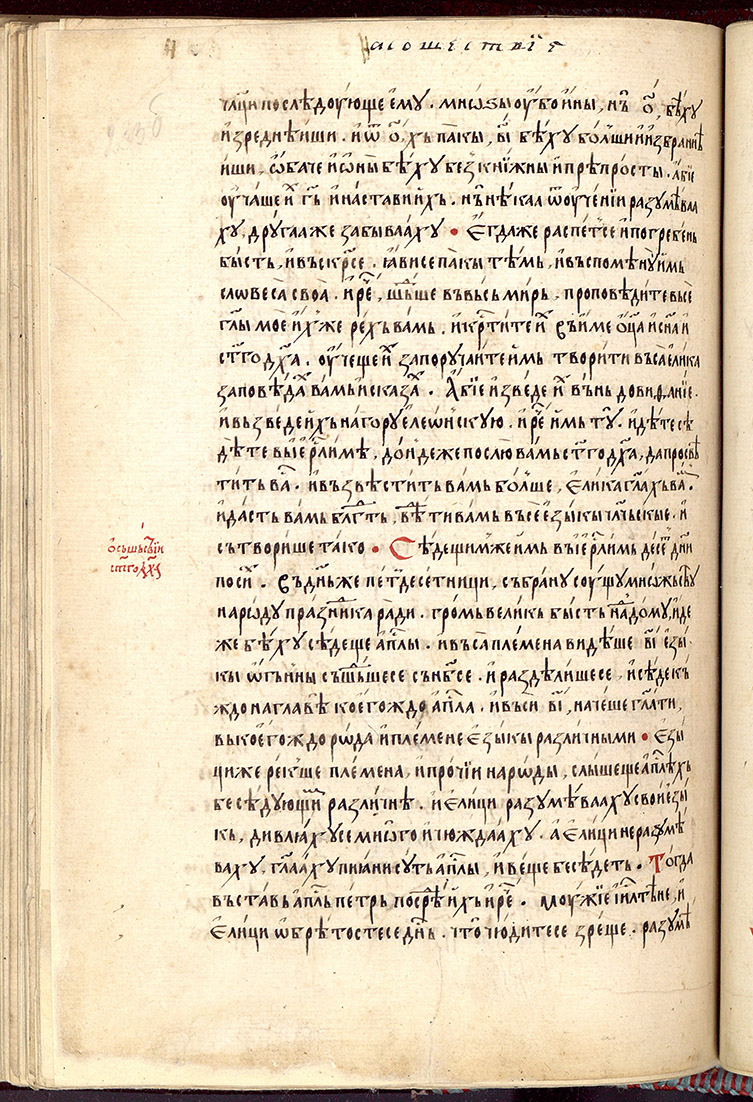 на сошьствїе
чл҃ци послѣдоующе ему. мноѕы оубо и ины, нь о҃, бѣху
изреднѣиши. и ѿ о҃, хь пакы, в҃і бѣху болши и избраннѣ
иши, ѡбаче и ѡны бѣху без книжны и прѣпрости. Абїе
оучаше и҃х г҃ь и настави ихъ. нь нѣкаа ѿ оученїи разумѣваа
ху, другаа же забывааху • Егда же распет се и погребень
бысть, и въскр҃се. ꙗви се пакы тѣмь, и въспомѣну имь
словеса своа. и ре҃, шьдьше въ вьсь мирь, проповѣдите вьсе
гл҃ы мое ихже рехъ вамь. и кр҃тите и҃х въ име ѡц҃а и сн҃а и
ст҃го дх҃а. оучеще и҃х запоручаите имь творити въса елика
заповѣдах вамь и сказах. Абїе изведе и҃х вънь до виѳанїе.
и възведе ихъ на гору елеѡнскую. и ре҃ имь ту. идѣте сѣ
дѣте вь іер҃лимѣ, доидеже послю вамь ст҃го дх҃а, да просвѣ
тить ва҃. и възвѣстить вамь болше, елика гл҃ахъ ва҃.
и дасть вамь блг҃ть, вѣтивамь въсе езыкы чл҃чьскые. и
сътворише тако • Сѣдещим же имь въ іер҃лимь десе҃ дн҃и
по си҃х. Въ дн҃ь же петдесетници, събрану соущу множьству
народу празника ради. громь великь бысть на҃д дому, иде
же бѣху сѣдеще ап҃лы. и въса племена видѣше в҃і езы
кы ѡгньны съшьдьше се съ нб҃се. и раздѣлише се, и сѣде къ
ждо на главѣ коегождо ап҃ла. и въси в҃і, начеше гл҃ати,
вь коегождо рѡда и племене езыкы различными • Езы
ци же рекуше племена, и прочїи нарѡды, слышеще ап҃лѣхъ
беседующихъ различнѣ. и елици разумѣвааху свои езы
кь, дивлꙗху се мнѡго и чюждааху. а елици не разумѣ
ваху, гл҃ааху пиани суть ап҃лы, и веще беседеть. Тогда
въставь ап҃ль петрь посре҃ ихъ и ре҃. Моужїе ій҃лтѣне, и
елици ѡбрѣтосте се дн҃ь. что чюдите се зреще. разумѣ
ѡ сьшьствїи
ст҃го дх҃а